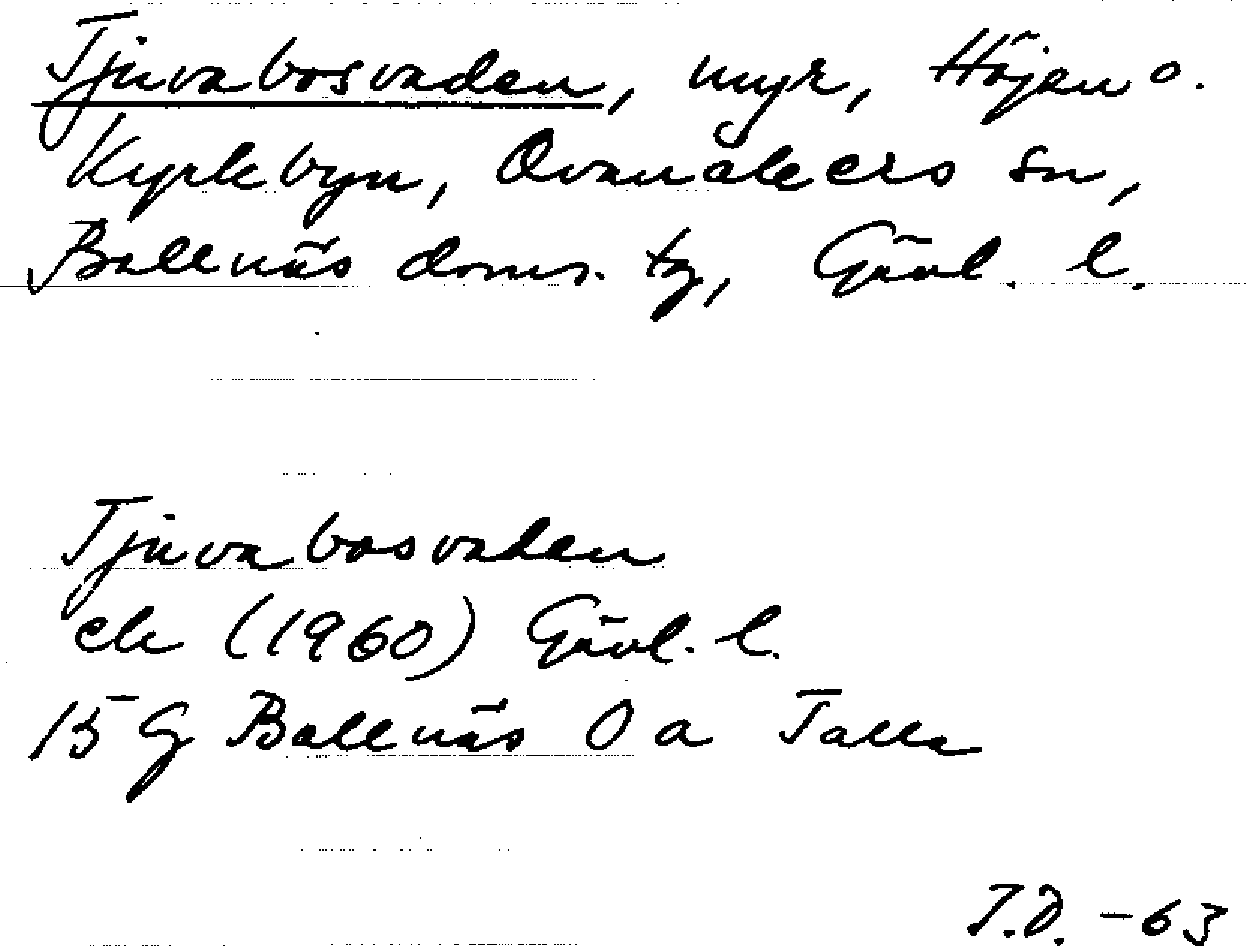 Tjuvabosvaden, myr, Höjen o.
Kyrkbyn, Ovanåkers sn,
Bollnäs doms. tg, Gävl. l.
Tjuvabosvaden
ek (1960) Gävl. l.
15 G Bollnäs 0 a Talla
T.D. -63